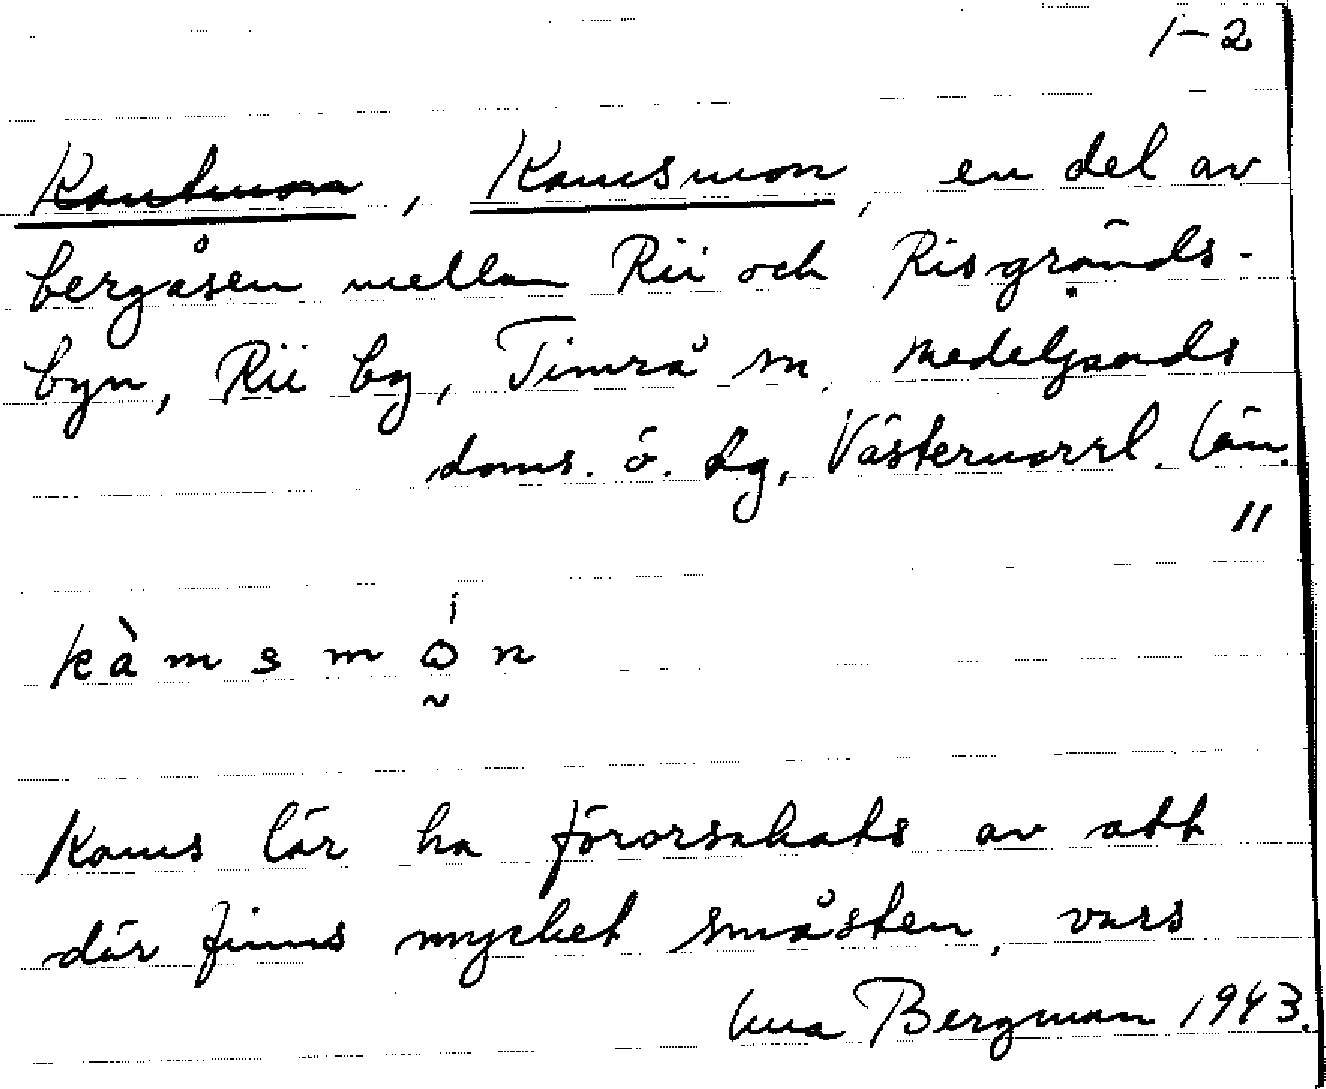 1-2
Kamsmon, en del av
bergåsen mellan Rii och Risgränds-
byn, Rii by, Timrå sn. Medelpads
doms. ö. tg, Västernorrl. län.
"
kàmsmón
Kams lär ha förorsakats av att
där finns mycket småsten, vars
Bergman 1943.